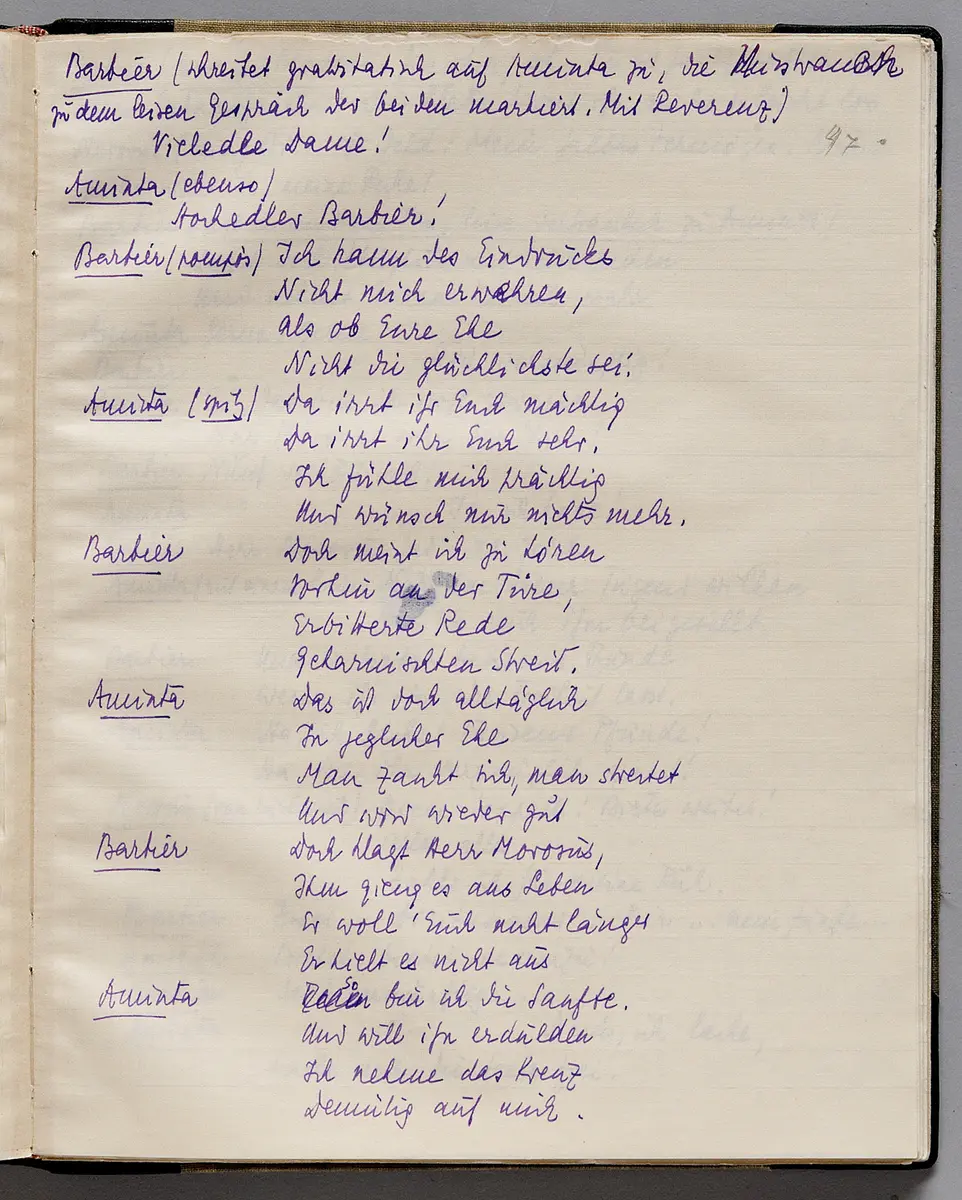 Barbier (schreitet gravitätisch auf Aminta zu, die
zu dem leisen Gespräch der beiden markiert. Mit Reverenz)
Vieledle Dame!
97.
Aminta (ebenso)
Hochedler Barbier!
Barbier (pompös) Ich kann des Eindrucks
Nicht mich erwehren,
als ob Eure Ehe
Nicht die glücklichste sei.
Aminta (spitz) Da irrt ihr Euch mächtig
Da irrt ihr Euch sehr.
Ich fühle mich prächtig
Und wünsch mir nichts mehr.
Barbier Doch meint ich zu hören
Vorhin an der Türe,
Erbitterte Rede
Geharnischten Streit.
Aminta Das ist doch alltäglich
In jeglicher Ehe
Man zankt sich, man streitet
Und wird wieder gut
Barbier Doch klagt Herr Morosus,
Ihm gieng es ans Leben
Er woll' Euch nicht länger
Er hielt es nicht aus
Aminta So bin ich die Sanfte.
Und will ihn erdulden
Ich nehme das Kreuz
Demütig auf mich.